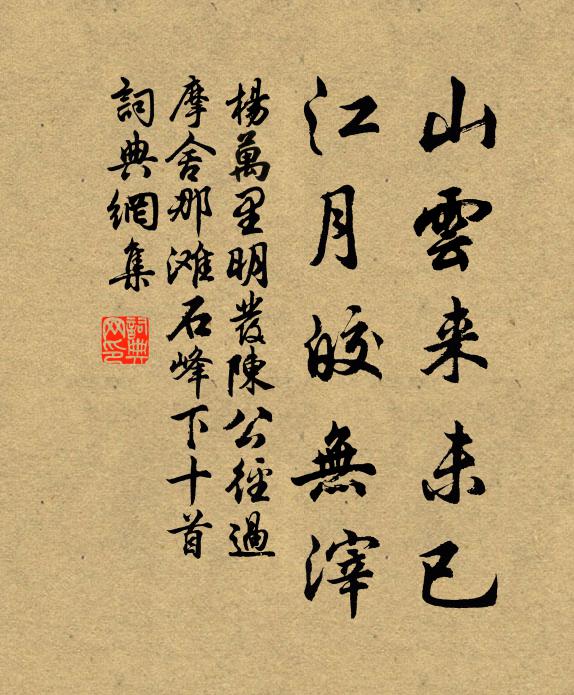 山雲来未已
江月皎無滓
楊萬里明發陳公徑過
摩舍那滩石峰下十首
詞典網集
詞典网印